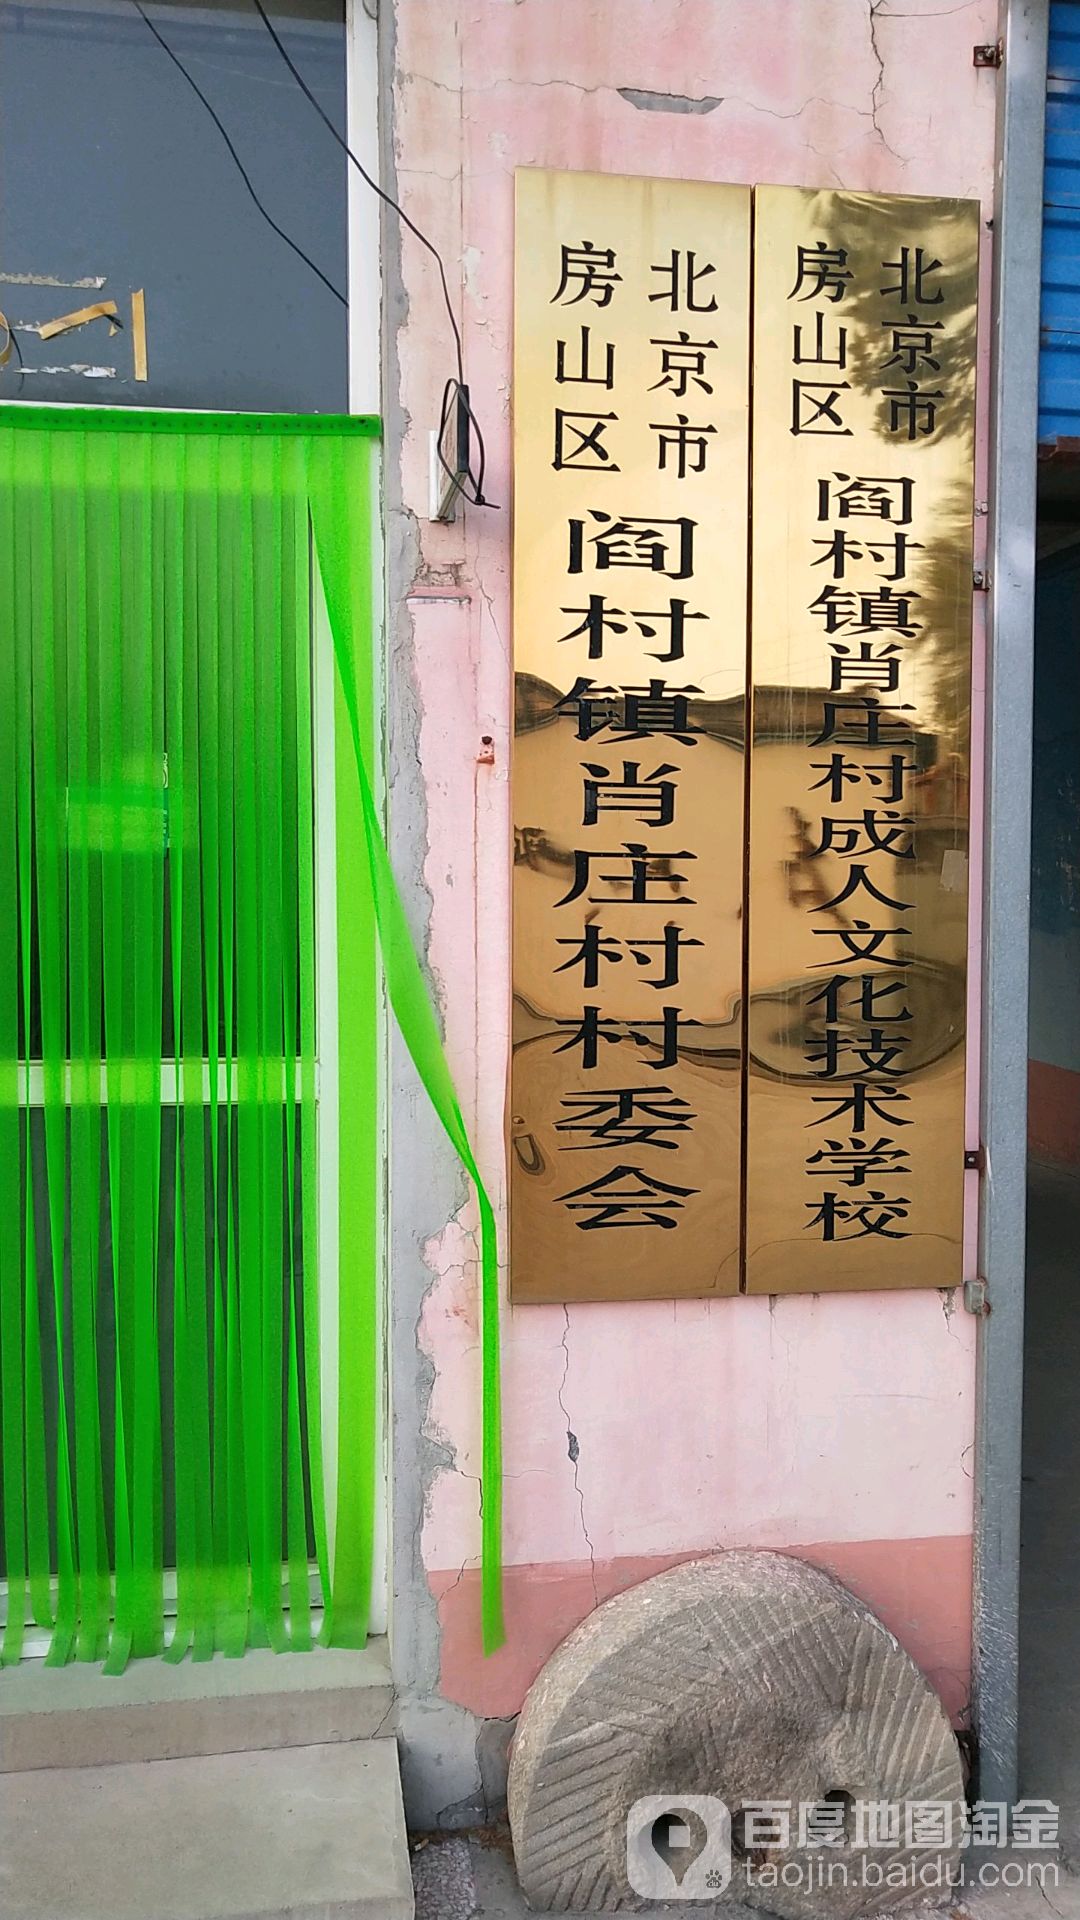 北京市
房山区
阎村镇肖庄村成人文化技术学校
北京市
房山区
阎村镇肖庄村村委会
百度地图淘金
taojin.baidu.com